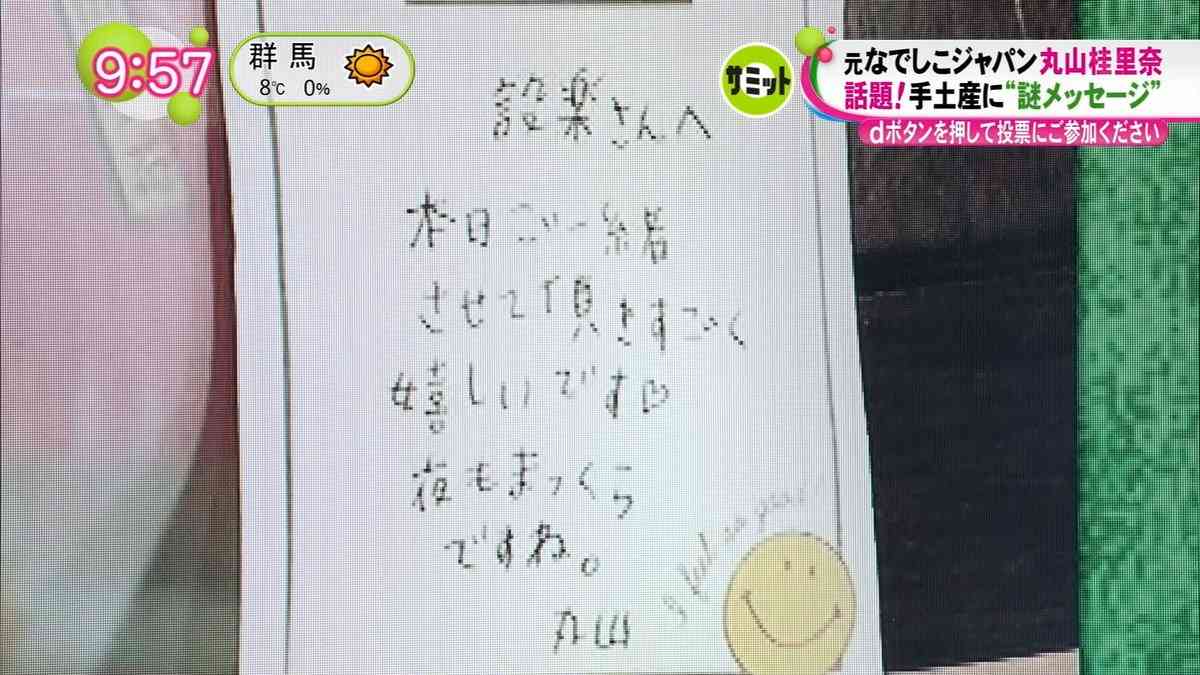 9:57
群馬
8℃ 0%
サミット
元なでしこジャパン丸山桂里奈
話題!手土産に"謎メッセージ"
dボタンを押して投票にご参加ください
設楽さんへ
本日ご一緒
させて頂きすごく
嬉しいです
夜もまっくら
ですね。
丸山